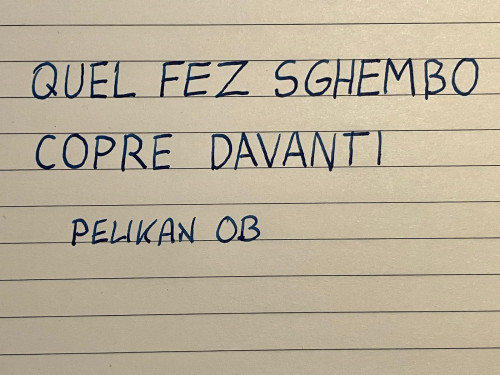 QUEL FEZ SGHEMBO
COPRE DAVANTI
PELIKAN OB